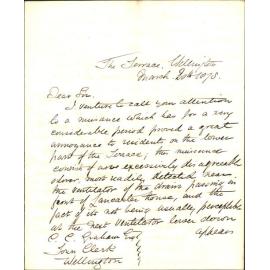 The Terrace, Wellington
March 20th 1878.
Dear Sir,
I venture to call your attention
to a nuisance which has for a very
considerable period proved a great
annoyance to residents on the lower
part of the Terrace; the nuisance
consists of an excessively disagreeable
odour, most readily detected near
the ventilator of the drains passing in
front of Lancaster house, and the
fact of its not being usually perceptible
at the next ventilator lower down
appears
C. C. Graham Esq
Town Clerk
Wellington